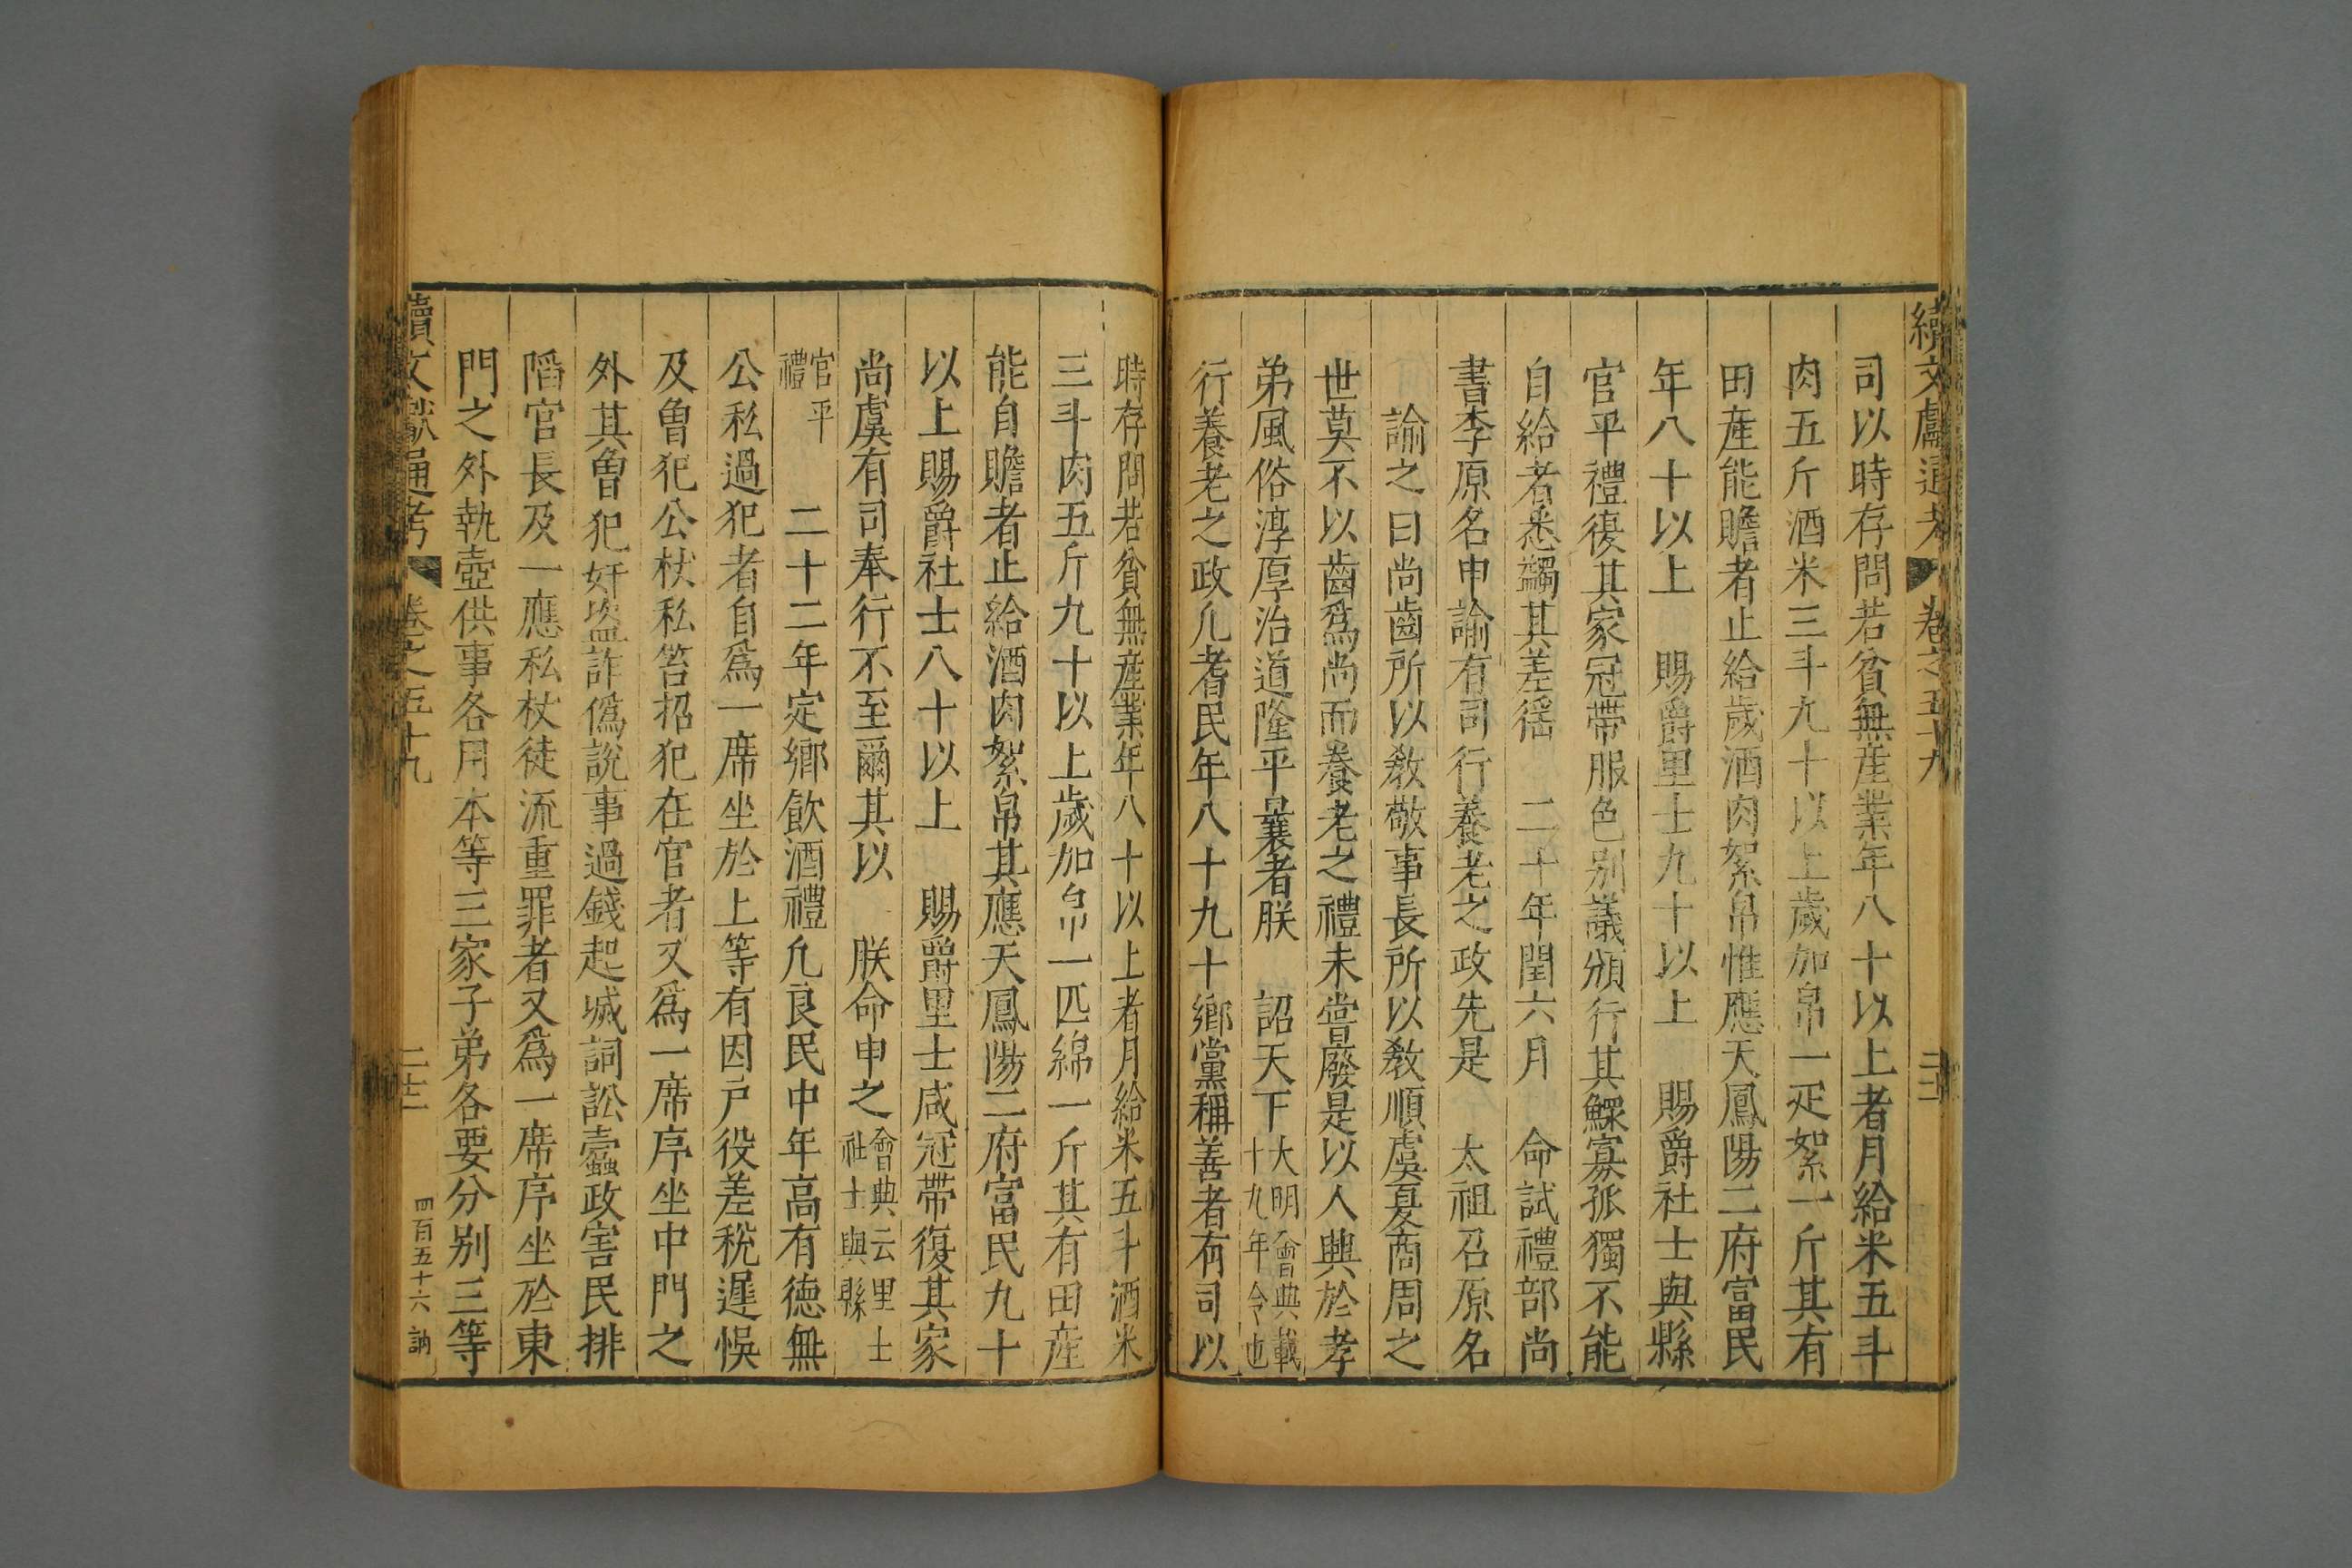 續文獻通考 卷之五十九
司以時存問若貧無産業年八十以上者月給米五斗
肉五斤酒米三斗九十以上歲加帛一疋絮一斤其有
田産能贍者止給歲酒肉絮帛惟應天鳳陽二府富民
年八十以上 賜爵里士九十以上 賜爵社士與縣
官平禮復其家冠帶服色别議頒行其鰥寡孤獨不能
自給者悉蠲其差徭 二十年閏六月 命試禮部尚
書李原名申諭有司行養老之政先是 太祖召原名
諭之曰尚齒所以教敬事長所以教順虞夏商周之
世莫不以齒爲尚而養老之禮未嘗廢是以人興於孝
弟風俗淳厚治道隆平曩者朕 詔天下大明會典載十九年令也
行養老之政凢耆民年八十九十鄉黨稱善者有司以
時存問若貧無産業年八十以上者月給米五斗酒米
三斗肉五斤九十以上歲加帛一匹綿一斤其有田産
能自贍者止給酒肉絮帛其應天鳳陽二府富民九十
以上賜爵社士八十以上 賜爵里士咸冠帶復其家
尚虞有司奉行不至爾其以 朕命申之會典云里士社士與縣
官平禮 二十二年定鄉飲酒禮凢良民中年高有德無
公私過犯者自爲一席坐於上等有因戶役差稅遲悞
及曾犯公杖私笞招犯在官者又爲一席序坐中門之
外其曾犯奸盜詐僞說事過錢起㓕詞訟蠹政害民排
陷官長及一應私杖徒流重罪者又爲一席序坐於東
門之外執壺供事各用本等三家子弟各要分别三等
續文獻通考 卷之五十九 四百五十六 訥